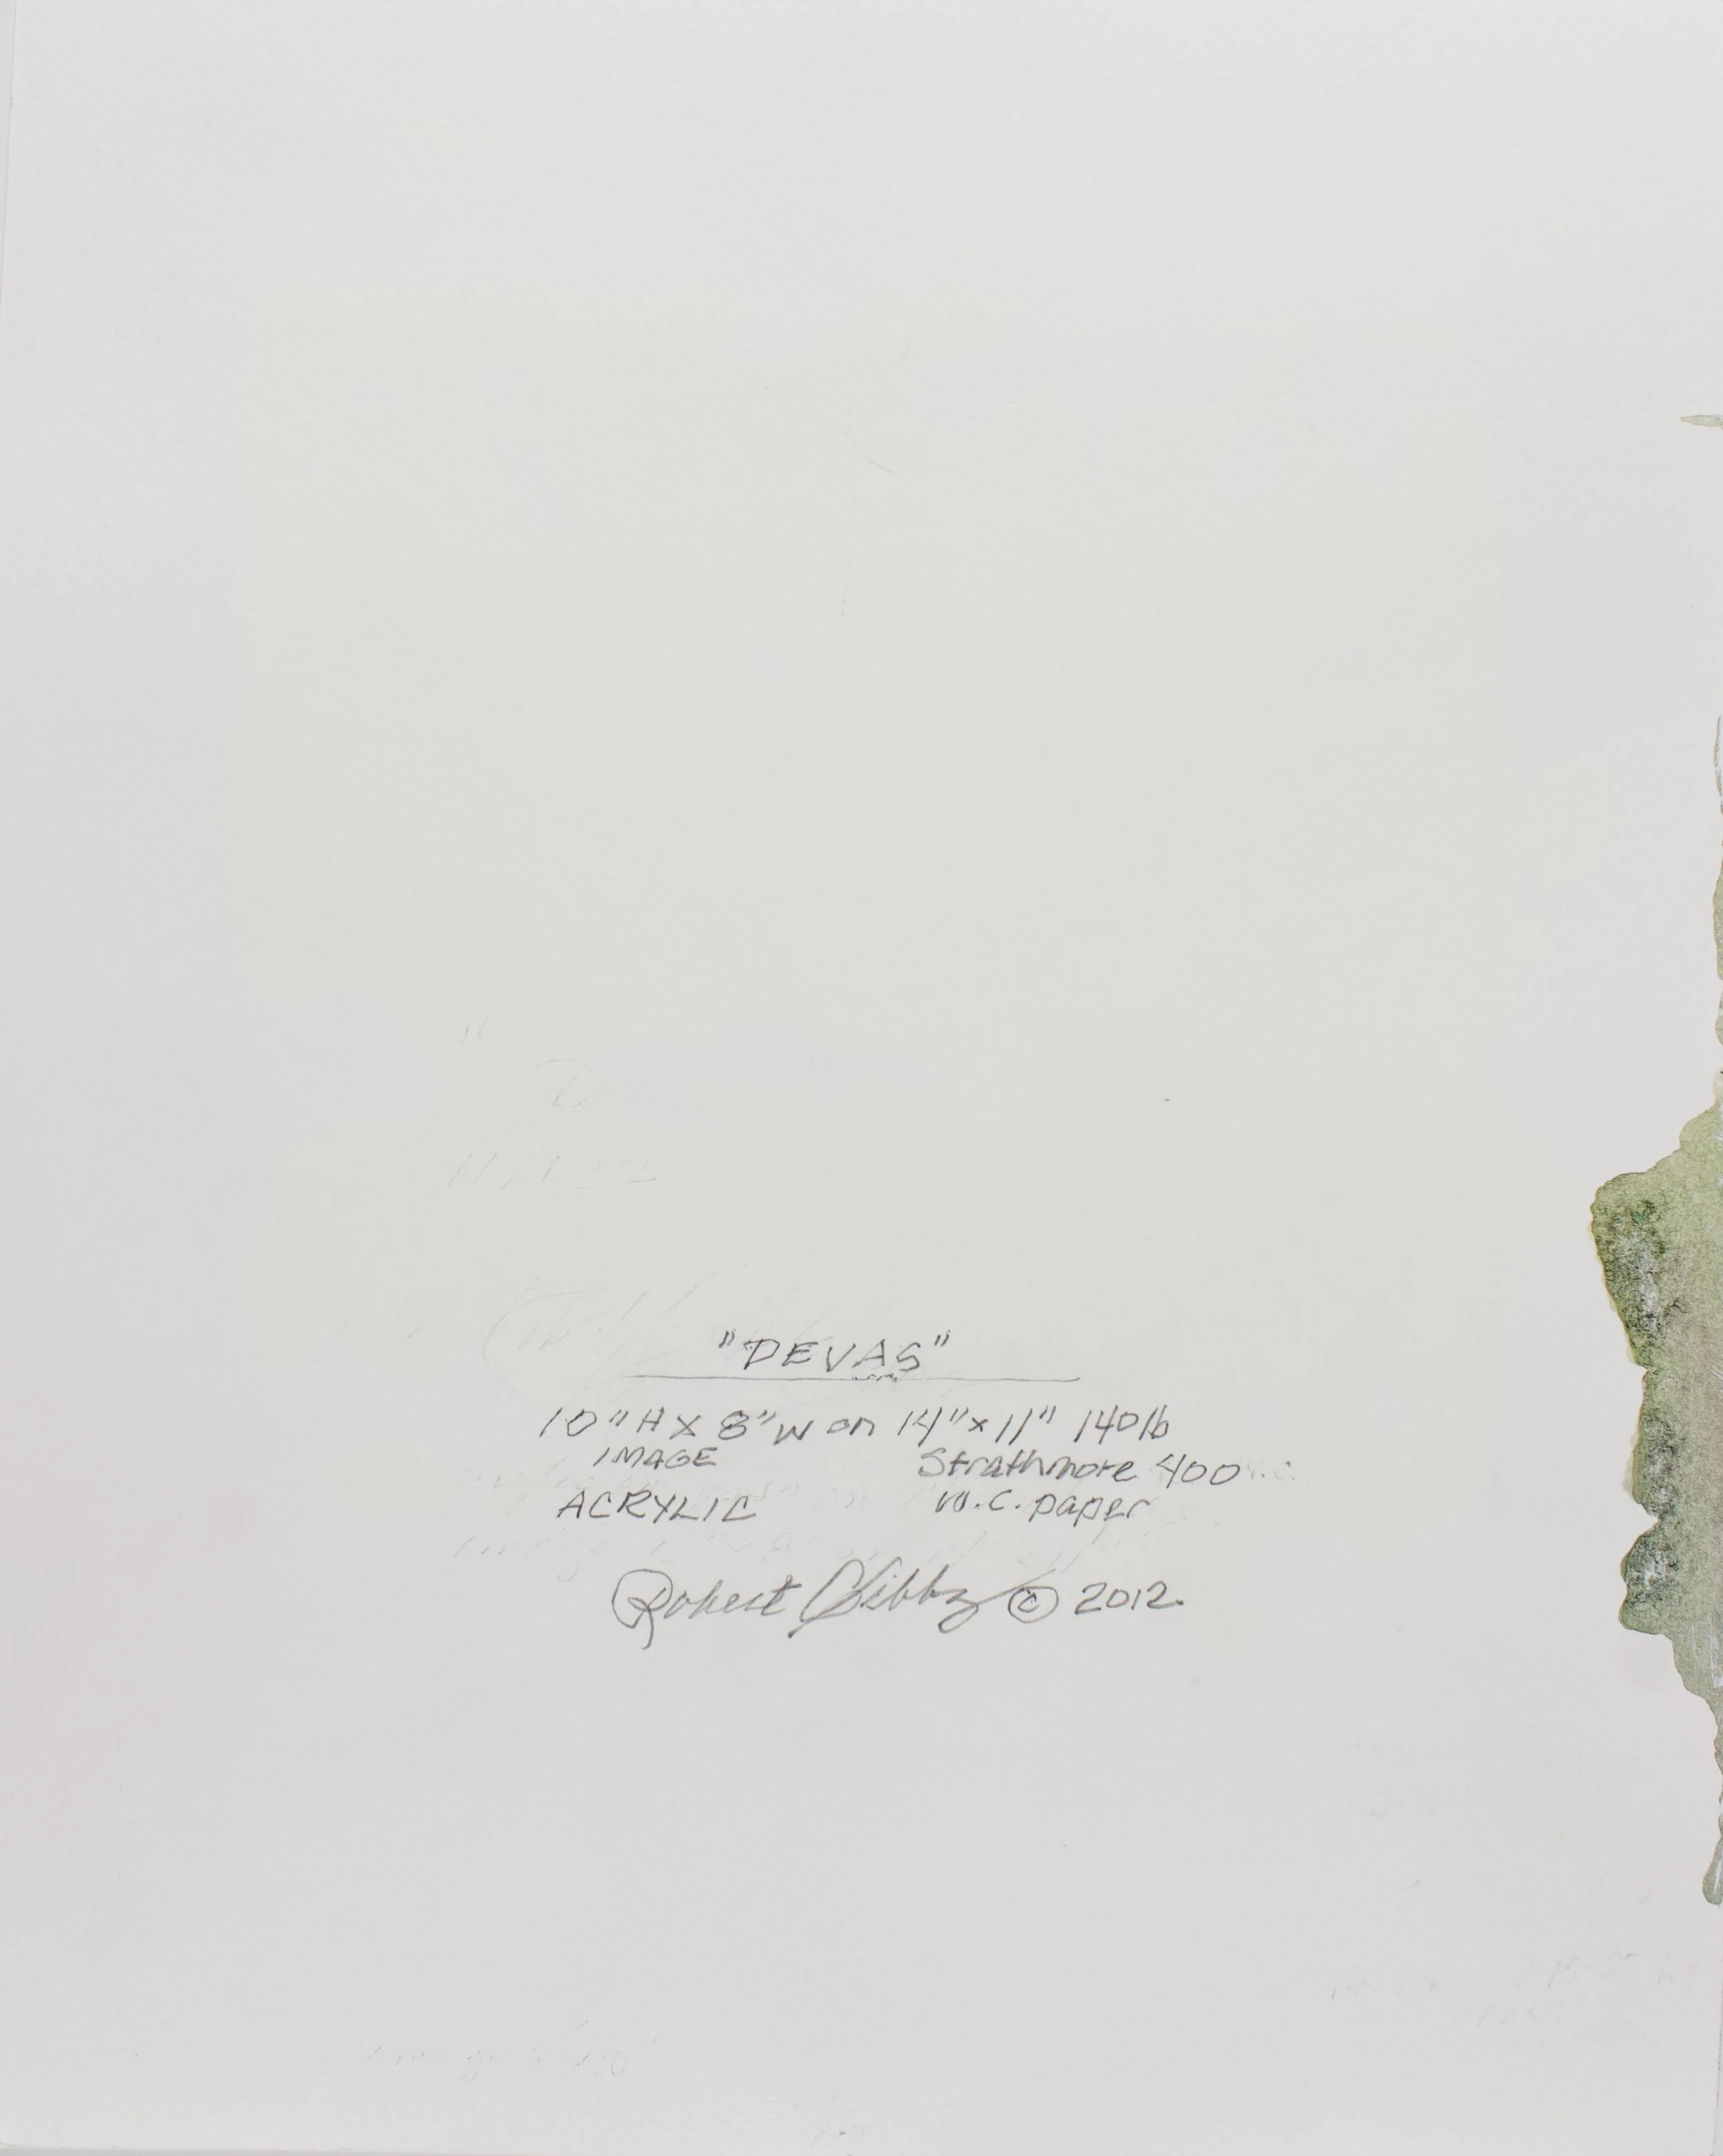 "DEVAS"
10"H X 8"W on 14"x11" 140lb
IMAGE Strathmore 400
ACRYLIC W.C. paper
Robert Gibbs © 2012